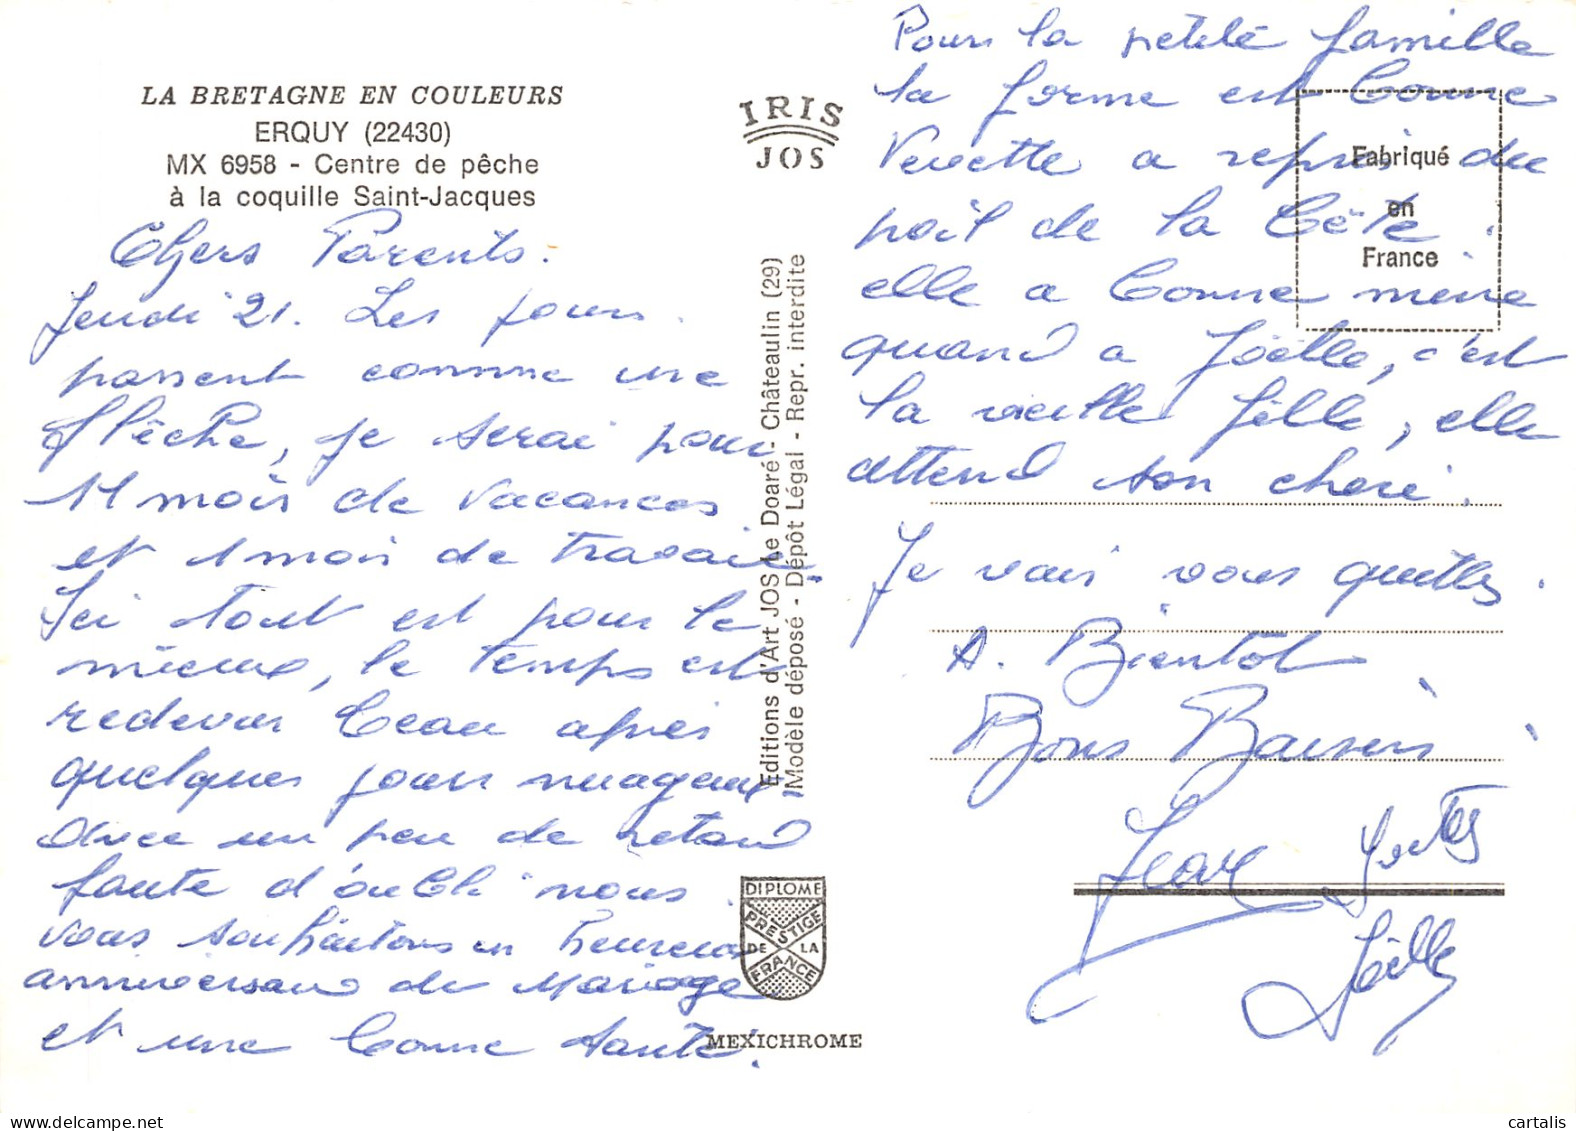 LA BRETAGNE EN COULEURS
ERQUY (22430)
MX 6958 - Centre de pêche
à la coquille Saint-Jacques
Chers Parents.
Jeudi 21. Les jours
passent comme une
flèche, je serai pour
11 mois de vacances
et 1 mois de travail.
Ici tout est pour le
mieux, le temps est
redevenu beau après
quelques jours nuageux
avec un peu de retard
faute d'oubli nous
vous souhaitons un heureux
anniversaire de Mariage
et une bonne Santé.
IRIS
JOS
Editions d'Art JOS Le Doaré - Châteaulin (29)
Modèle déposé - Dépôt Légal - Repr. interdite
DIPLOME
PRESTIGE
DE LA
FRANCE
MEXICHROME
Pour la petite famille
la forme est bonne
a repris du
poil de la bête.
elle a bonne mine
quand a Joëlle, c'est
la vieille fille, elle
attend son chéri.
Fabriqué
en
France
Je vais vous quitter.
A. Bientôt
Bons Baisers
Jean
Joëlle
cartalis